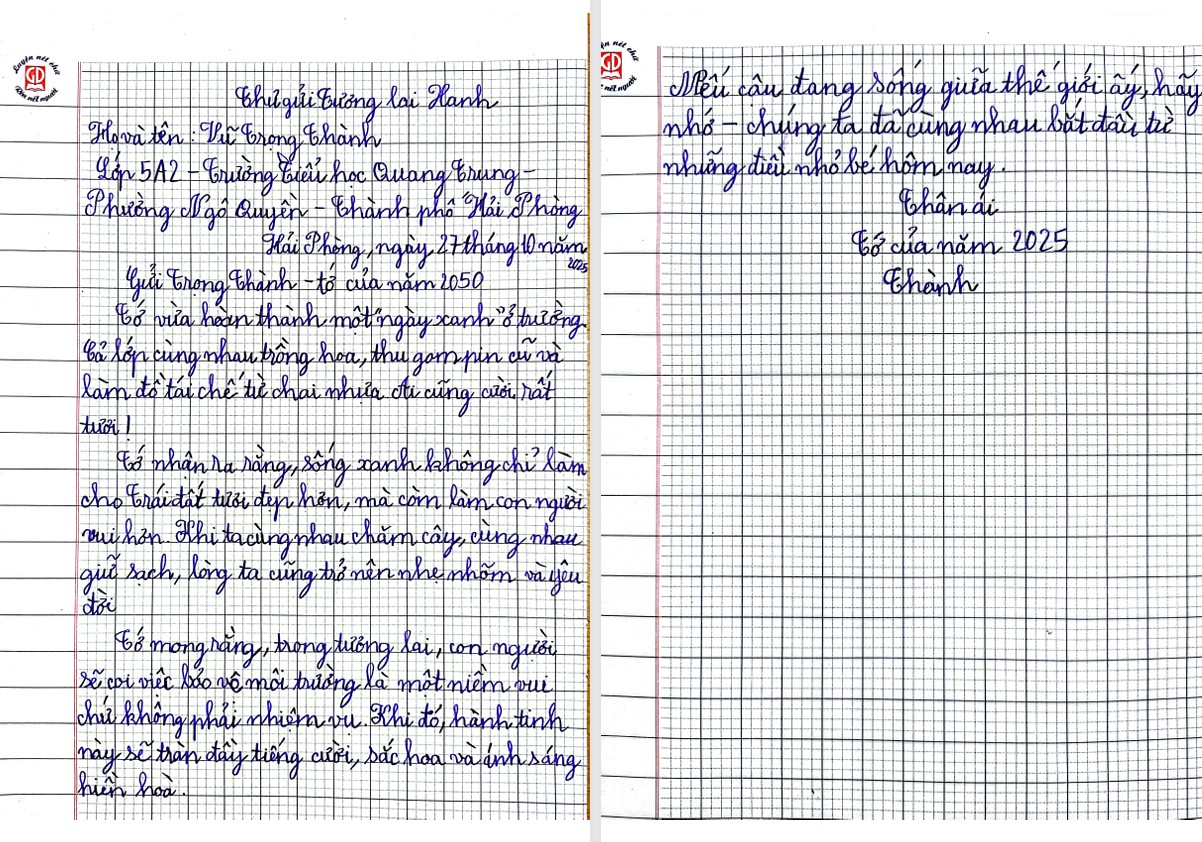 Luyện nét chữ
GD
Rèn nết người
Thư gửi Tương lai Xanh
Họ và tên : Vũ Trọng Thành
Lớp 5A2 – Trường Tiểu học Quang Trung –
Phường Ngô Quyền – Thành phố Hải Phòng
Hải Phòng, ngày 27 tháng 10 năm
2025
Gửi Trọng Thành – tớ của năm 2050
Tớ vừa hoàn thành một "ngày xanh" ở trường.
Cả lớp cùng nhau trồng hoa, thu gom pin cũ và
làm đồ tái chế từ chai nhựa. Ai cũng cười rất
tươi !
Tớ nhận ra rằng, sống xanh không chỉ làm
cho Trái đất tươi đẹp hơn, mà còn làm con người
vui hơn. Khi ta cùng nhau chăm cây, cùng nhau
giữ sạch, lòng ta cũng trở nên nhẹ nhõm và yêu
đời
Tớ mong rằng, trong tương lai, con người
sẽ coi việc bảo vệ môi trường là một niềm vui
chứ không phải nhiệm vụ. Khi đó, hành tinh
này sẽ tràn đầy tiếng cười, sắc hoa và ánh sáng
hiền hoà.
GD
Nếu cậu đang sống giữa thế giới ấy, hãy
nhớ – chúng ta đã cùng nhau bắt đầu từ
những điều nhỏ bé hôm nay.
Thân ái
Tớ của năm 2025
Thành